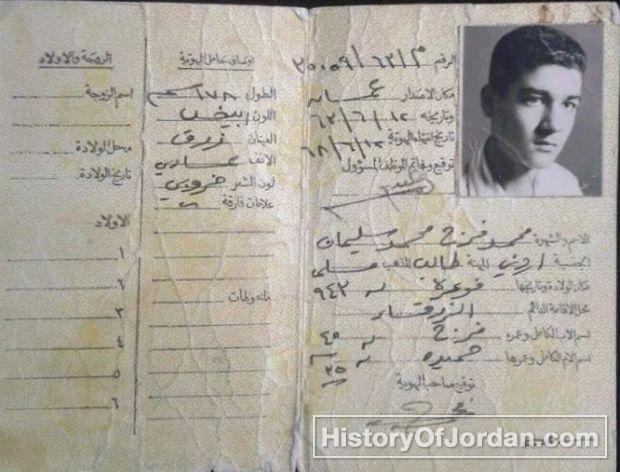 الرقم م/٦٢/ ٢٥٠٥٩
مكان الاصدار عمان
وتاريخه ١٢/٦/٦٢
تاريخ انتهاء الهوية ١٢/٦/٦٨
توقيع وخاتم الموظف المسؤول
الاسم والشهرة محمد فرج محمد سليمان
الجنسية اردني المهنة طالب المذهب مسلم
مكان الولادة وتاريخها ٩٤٣
محل الاقامة الدائم الزرقاء
اسم الاب الكامل وعمره فرج ٤٥
اسم الام الكامل وعمرها حميده ٣٥
توقيع صاحب الهوية
اوصاف حامل الهوية
الطول ١٧٨ سم
اللون ابيض
العينان زرق
الانف عادي
لون الشعر خروبي
علامات فارقة
ملحوظات
الزوجة والاولاد
اسم الزوجة
محل الولادة
تاريخ الولادة
الاولاد
١
٢
٣
٤
٥
٦
HistoryOfJordan.com